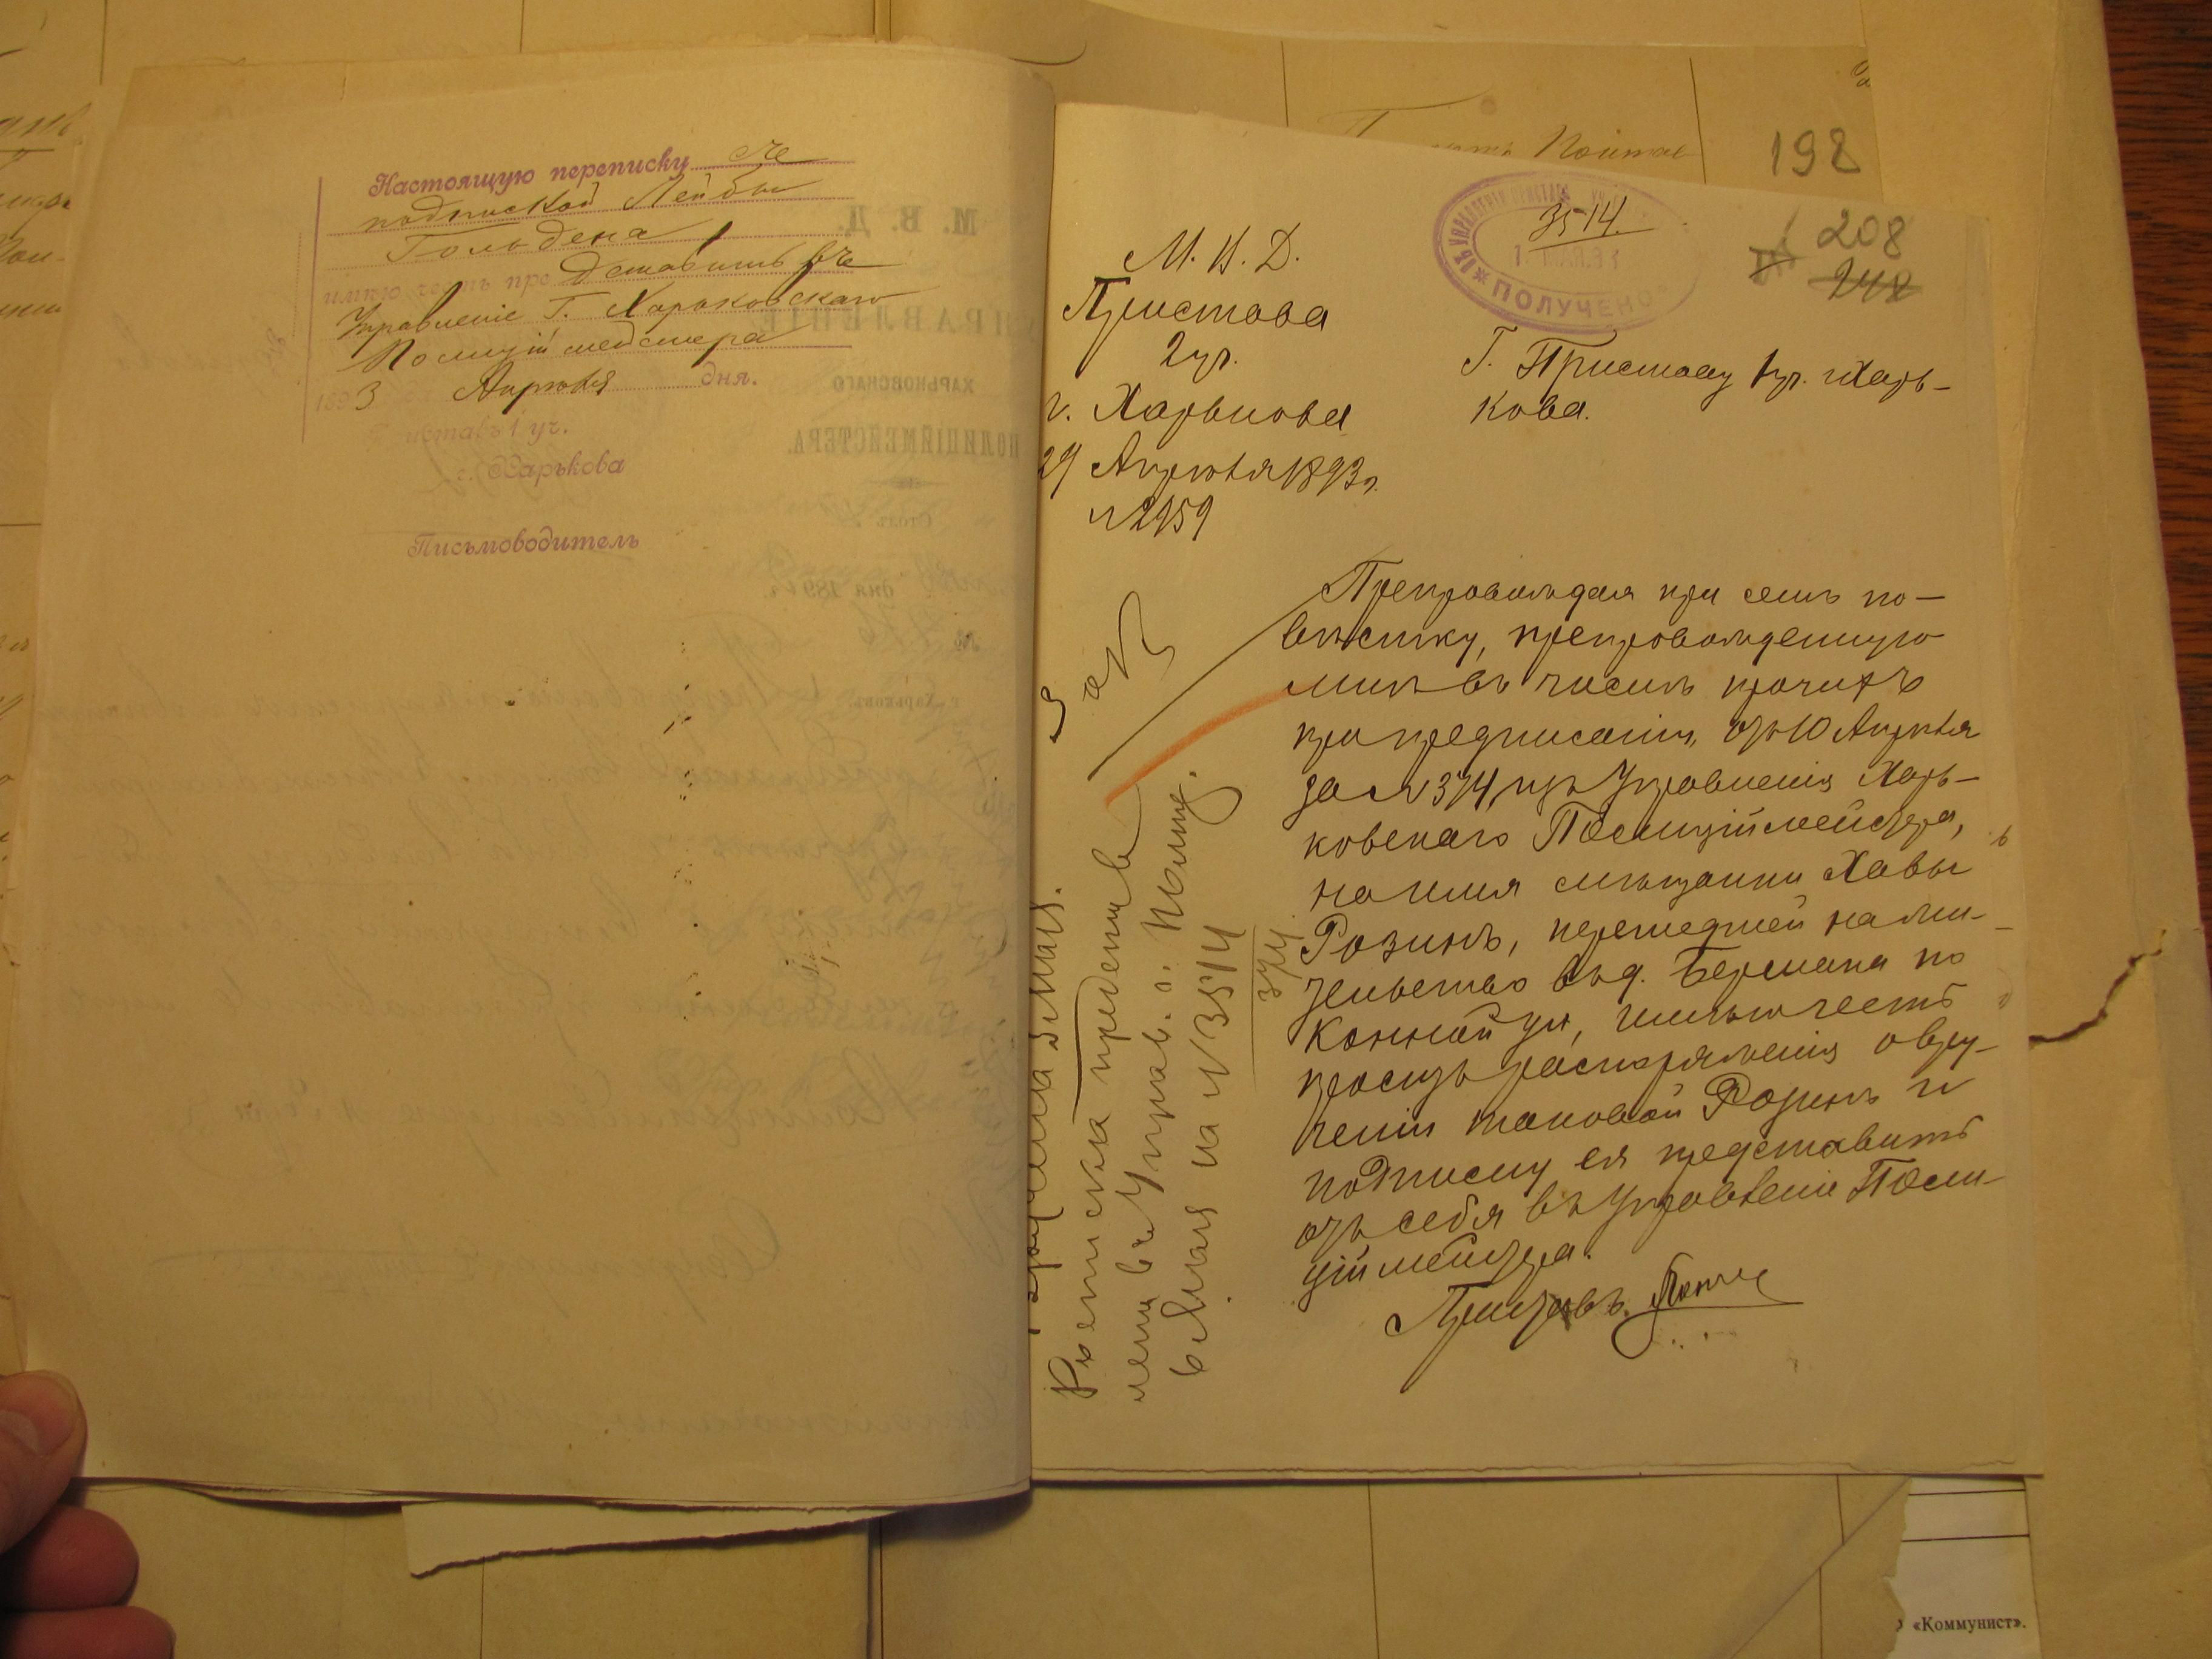 Настоящую переписку съ
подпиской Лейбы
Гольдена
имѣю честь представить въ
Управленіе Г. Харьковскаго
Полиціймейстера
1893 Апрѣля дня.
Приставъ 1 уч.
г. Харькова
Письмоводитель
198
208
248
3514.
ПОЛУЧЕНО
М. В. Д.
Пристава
2 уч.
г. Харькова
29 Апрѣля 1893 г.
№ 2959
Г. Приставу 1 уч. г. Харь-
кова.
Препровождая при семъ по-
вѣстку, препровожденную
мнѣ въ числѣ прочихъ
при предписаніи, отъ 10 Апрѣля
за № 374, изъ Управленія Харь-
ковскаго Полиціймейстера,
на имя мѣщанки Хавы
Розинъ, перешедшей на жи-
тельство въ д. Бермана по
Конной ул, имѣю честь
просить распоряженія о вру-
ченіи таковой Розинъ и
подписку ея представить
отъ себя въ Управленіе Поли-
ціймейстера.
Приставъ
5 Мая.
Росписка представ
лена въ Управ. г. Полиц.
6 Мая на № 3514
«Коммунист».